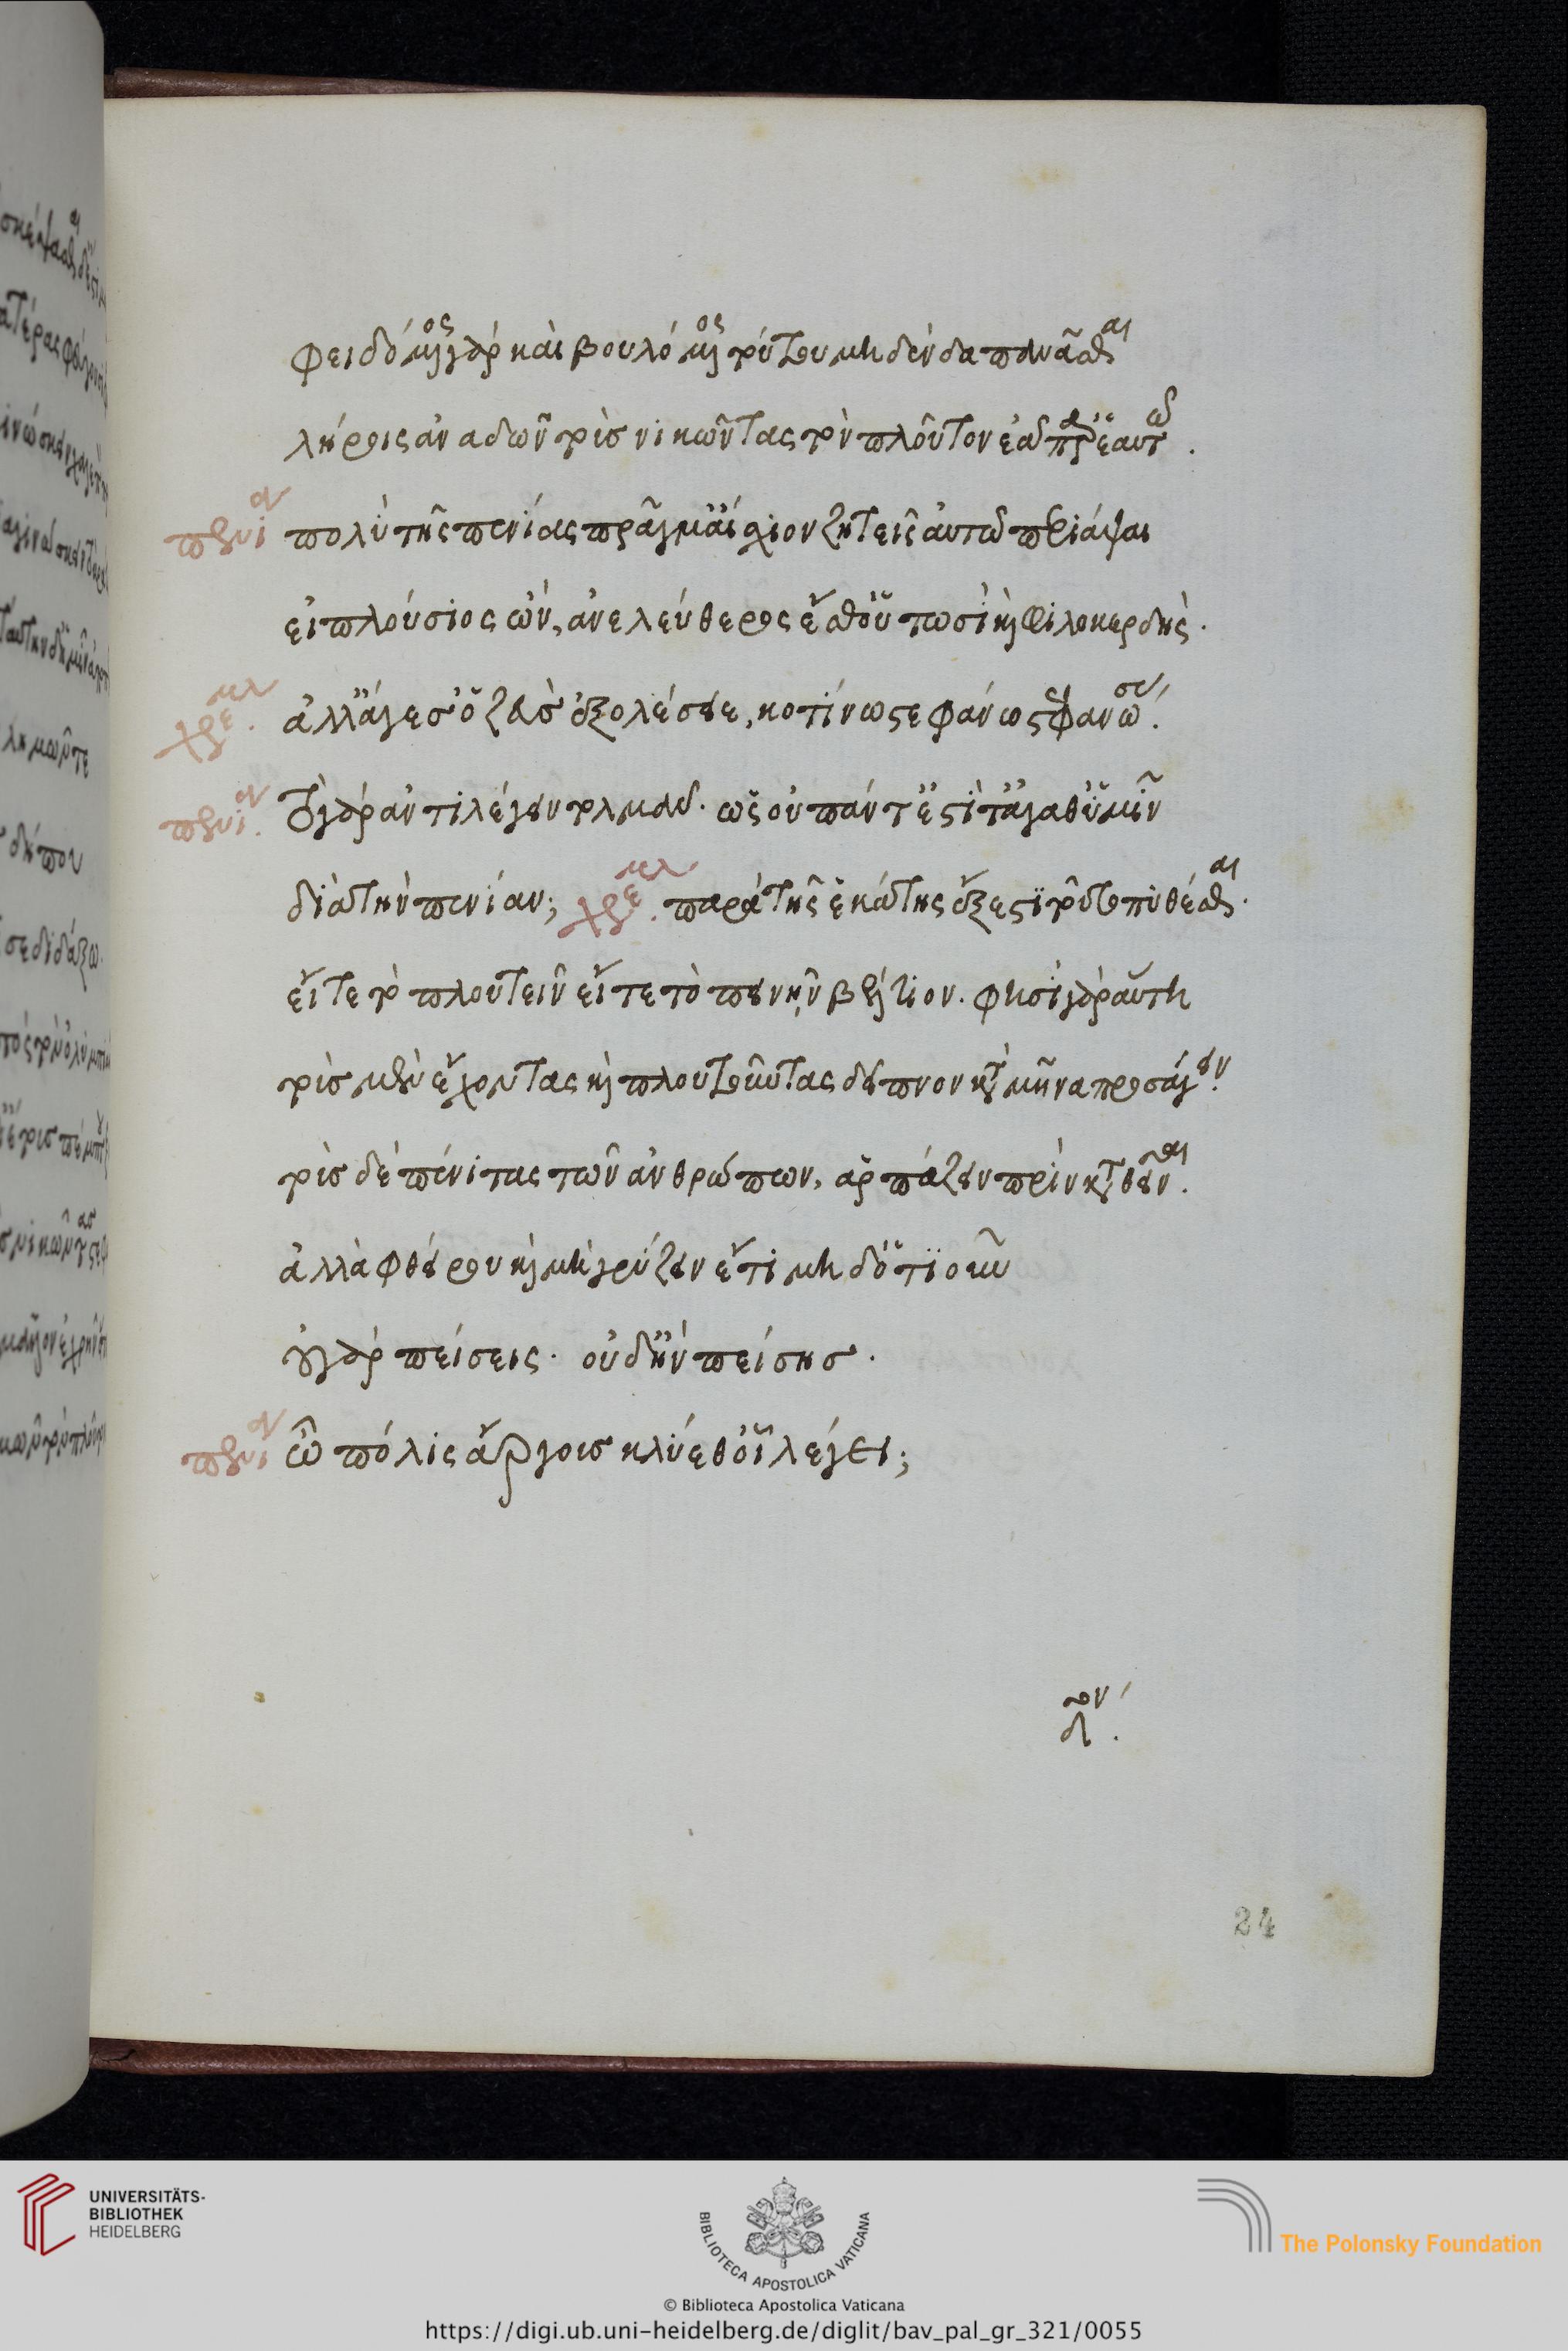 φειδόμενος γὰρ καὶ βουλόμενος τούτου μηδὲν δαπανᾶσθαι
λήροις ἀναδῶν τοὺς νικῶντας τὸν πλοῦτον ἐᾷ παρ' ἑαυτῷ.
πενία πολὺ τῆς πενίας πρᾶγμ' αἴσχιον ζητεῖς αὐτῷ περιάψαι
εἰ πλούσιος ὢν, ἀνελεύθερος ἔσθ' οὕτωσὶ καὶ φιλοκερδής.
χρεμυλ. ἀλλὰ σέ γ' ὁ ζεὺς ἐξολέσειε, κοτίνω στεφάνω στεφανώσας.
πενία. τὸ γὰρ ἀντιλέγειν τολμᾶν. ὡς οὐ πάντ' ἔστ' ἀγάθ' ὑμῖν
διὰ τὴν πενίαν; χρεμυλ. παρὰ τῆς ἑκάτης ἔξεστι τοῦτο πυθέσθαι.
εἴτε τὸ πλουτεῖν εἴτε τὸ πεινῆν βέλτιον. φησὶ γὰρ αὕτη
τοὺς μὲν ἔχοντας καὶ πλουτοῦντας δεῖπνον κατὰ μῆνα προσάγειν.
τοὺς δὲ πένητας τῶν ἀνθρώπων, ἁρπάζειν πρὶν καταθεῖναι.
ἀλλὰ φθείρου καὶ μὴ γρύζειν ἔτι μηδ' ὁτιοῦν
οὐ γὰρ πείσεις. οὐδ' ἢν πείσης.
πενία ὦ πόλις ἄργους κλύεθ' οἷα λέγει;
24
UNIVERSITÄTS-
BIBLIOTHEK
HEIDELBERG
BIBLIOTECA APOSTOLICA VATICANA
The Polonsky Foundation
© Biblioteca Apostolica Vaticana
https://digi.ub.uni-heidelberg.de/diglit/bav_pal_gr_321/0055